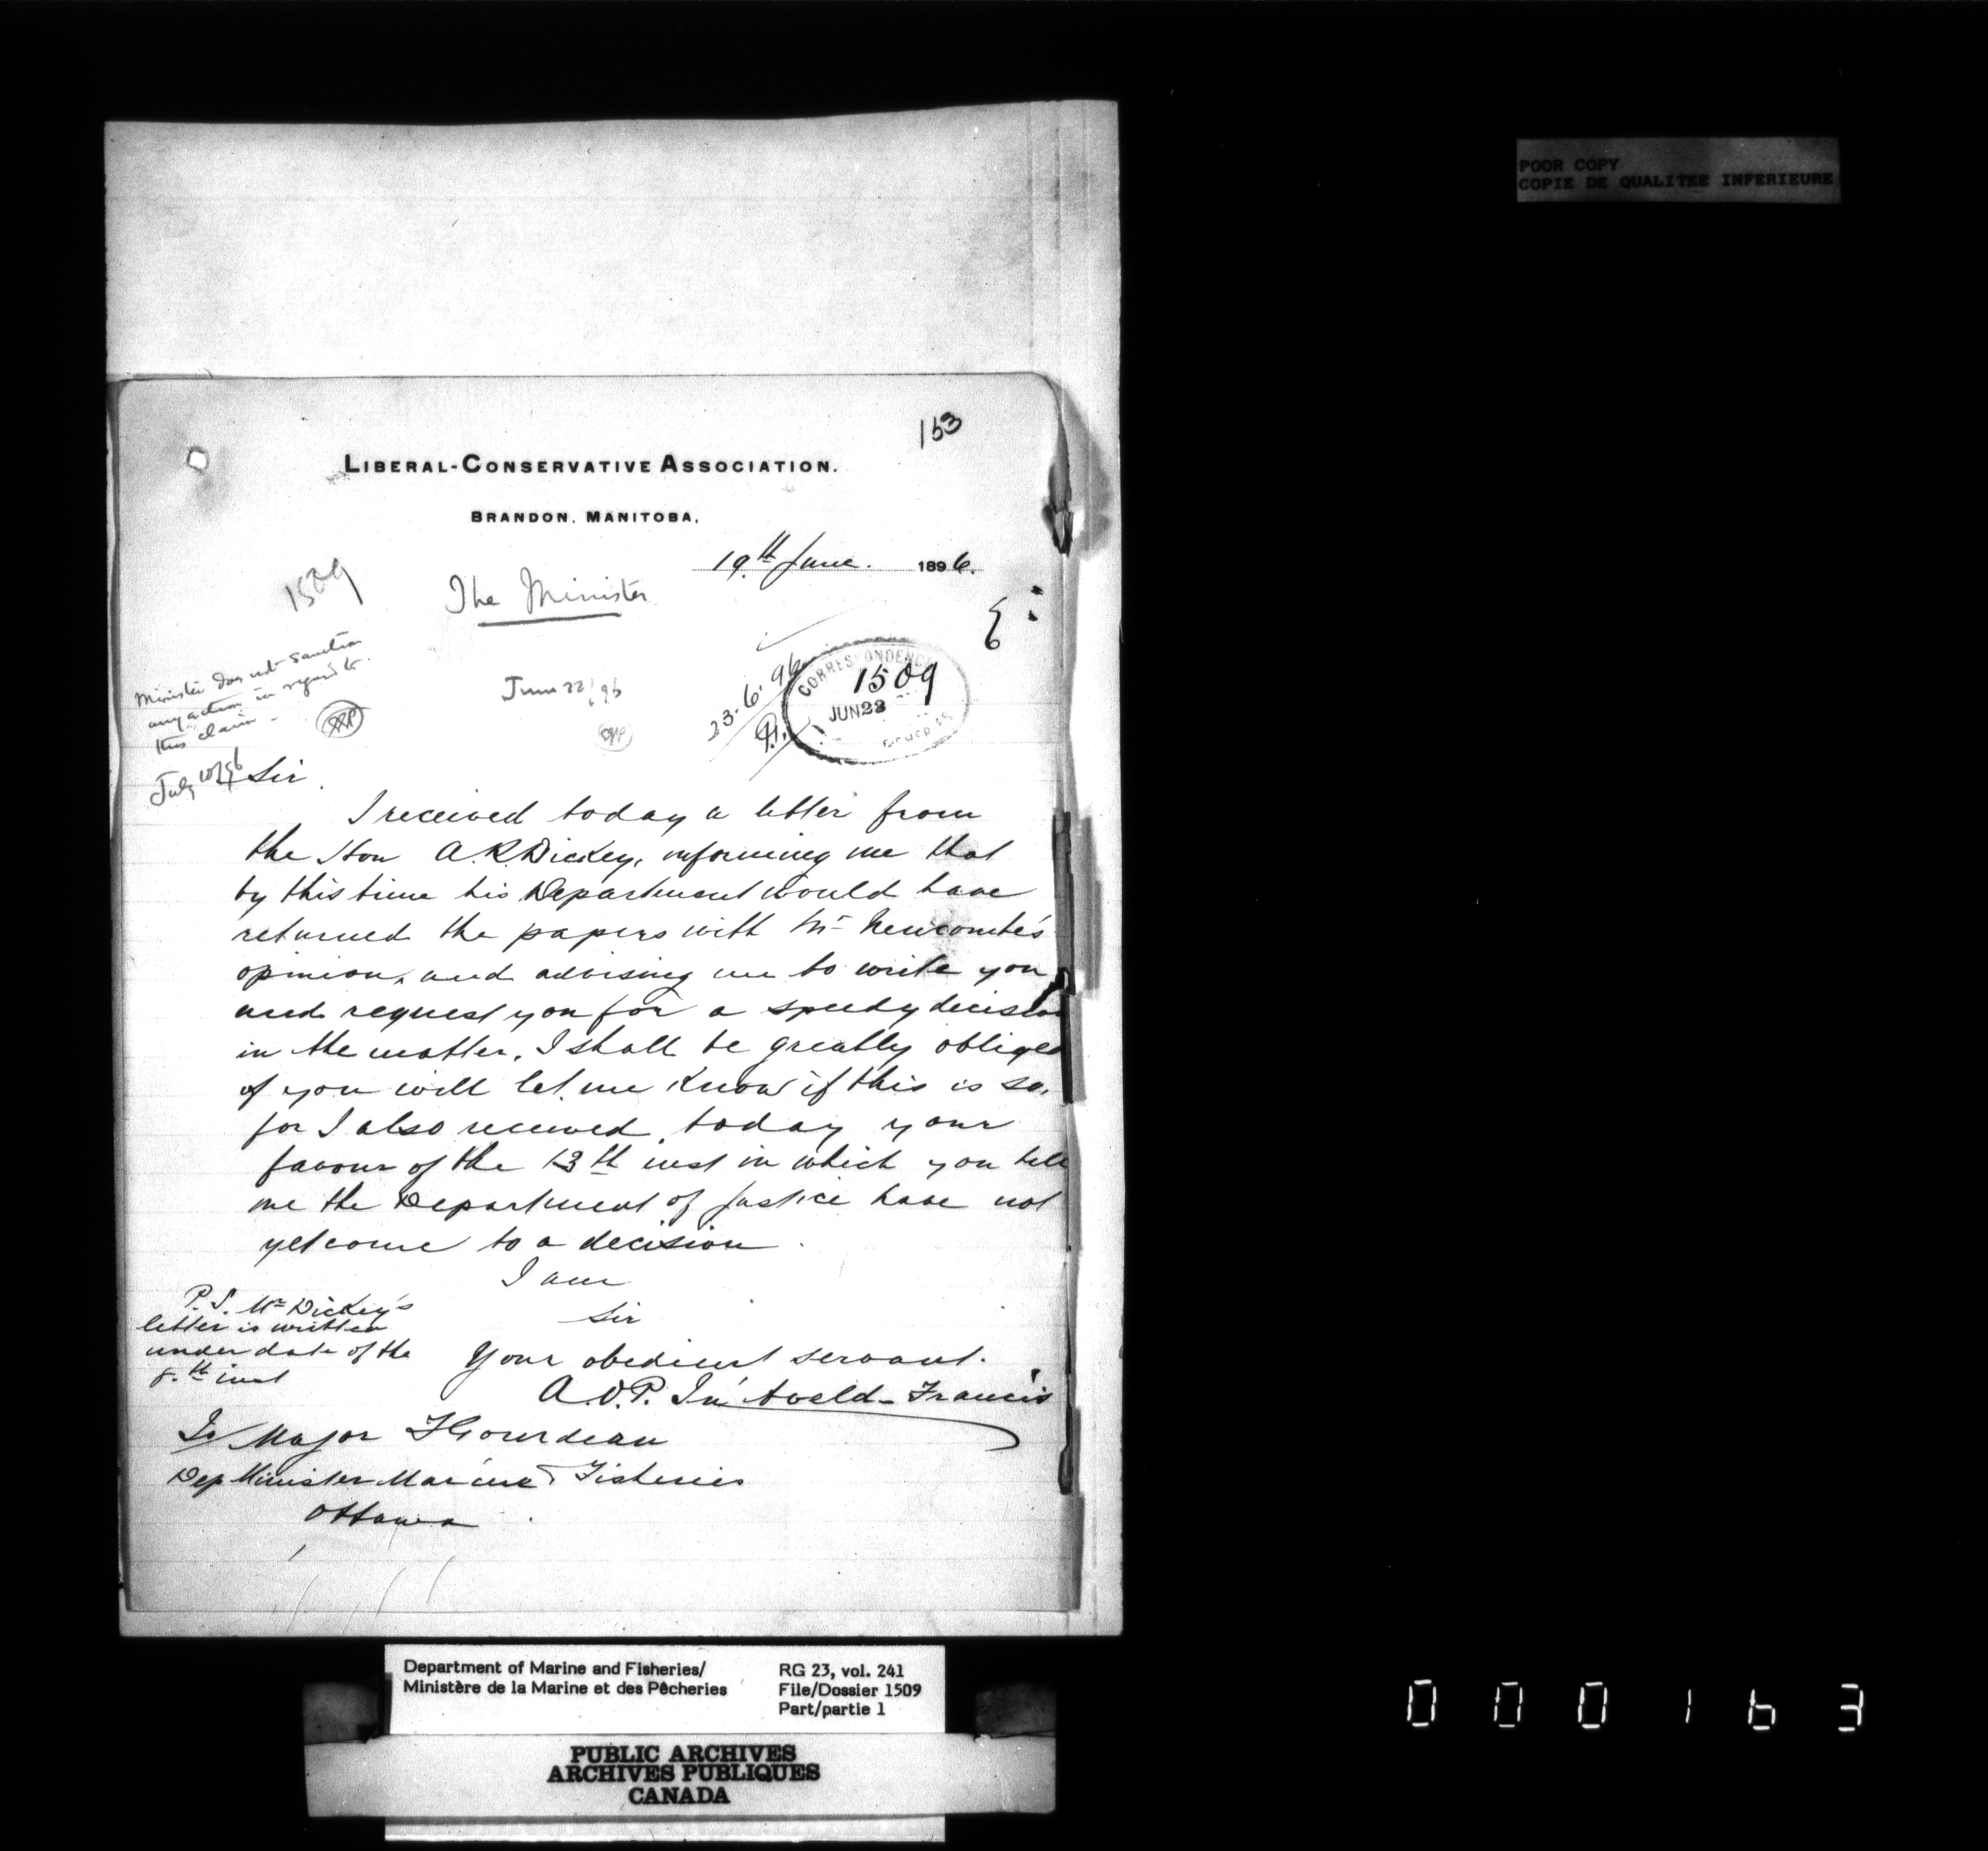 POOR COPY
COPIE DE QUALITEE INFERIEURE
163
LIBERAL-CONSERVATIVE ASSOCIATION.
BRANDON, MANITOBA,
19th June. 1896.
1509
The Minister
Minister does not sanction
any action in regard to
this claim -
July 10/96
June 22/96
23.6.96
CORRESPONDENCE
1509
JUN 23
Sir
I received today a letter from
the Hon A.R. Dickey, informing me that
by this time his Department would have
returned the papers with Mr Newcombe's
opinion, and advising me to write you
and request you for a speedy decision
in the matter. I shall be greatly obliged
if you will let me know if this is so,
for I also received today your
favour of the 13th inst in which you tell
me the Department of Justice have not
yet come to a decision.
I am
Sir
Your obedient servant.
A.O.P. In' Aveld-Francis
P.S. Mr Dickey's
letter is written
under date of the
8.th inst
To Major F Gourdeau
Dep Minister Marine & Fisheries
Ottawa
Department of Marine and Fisheries/
Ministère de la Marine et des Pêcheries
RG 23, vol. 241
File/Dossier 1509
Part/partie 1
PUBLIC ARCHIVES
ARCHIVES PUBLIQUES
CANADA
000163